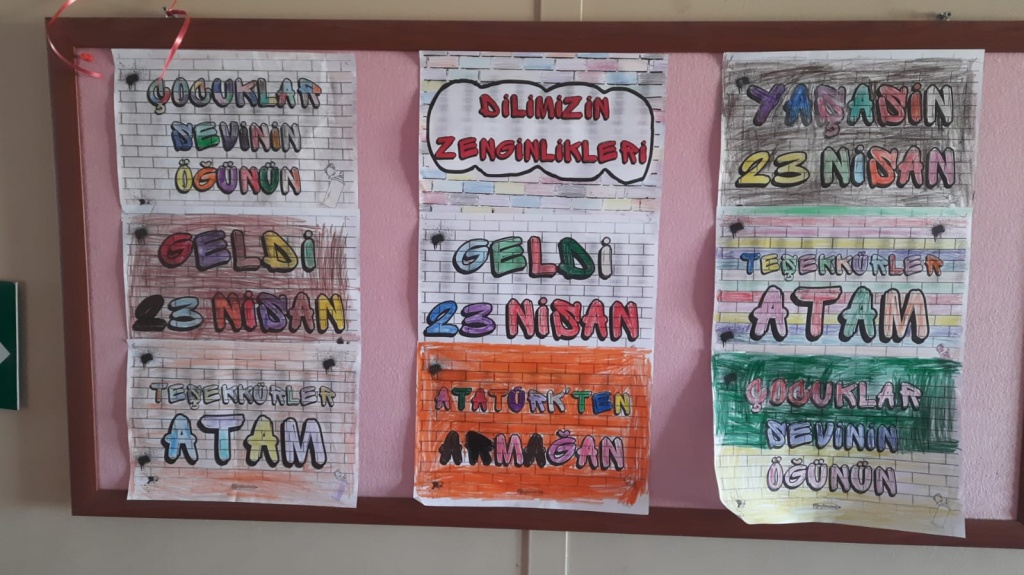 ÇOCUKLAR
SEVİNİN
ÖĞÜNÜN
GELDİ
23 NİSAN
TEŞEKKÜRLER
ATAM
DİLİMİZİN
ZENGİNLİKLERİ
GELDİ
23 NİSAN
ATATÜRK'TEN
ARMAĞAN
YAŞASIN
23 NİSAN
TEŞEKKÜRLER
ATAM
ÇOCUKLAR
SEVİNİN
ÖĞÜNÜN